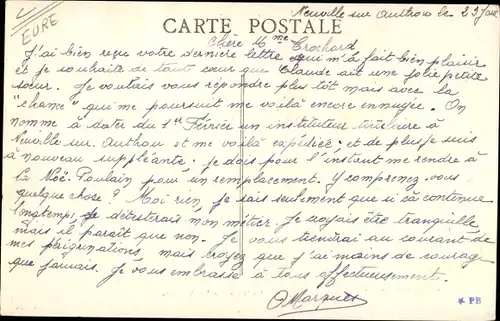 EURE
Neuville sur Authou le 23 Jan
CARTE POSTALE
Chère Mme Crochard
J'ai bien reçu votre dernière lettre qui m'a fait bien plaisir
et je souhaite de tout cœur que Claude ait une jolie petite
sœur. Je voulais vous répondre plus tôt mais avec la
"chance" qui me poursuit me voilà encore ennuyée. On
nomme à dater du 1er Février un instituteur titulaire à
Neuville sur Authou et me voilà expédiée ; et de plus je suis
à nouveau suppléante. Je dois pour l'instant me rendre à
La Noë-Poulain pour un remplacement. Y comprenez-vous
quelque chose ? Moi rien, je sais seulement que si cà continue
longtemps je détesterais mon métier. Je croyais être tranquille
mais il paraît que non. Je vous tiendrai au courant de
mes pérégrinations, mais croyez que j'ai moins de courage
que jamais. Je vous embrasse à tous affectueusement.
O Marques
* PB